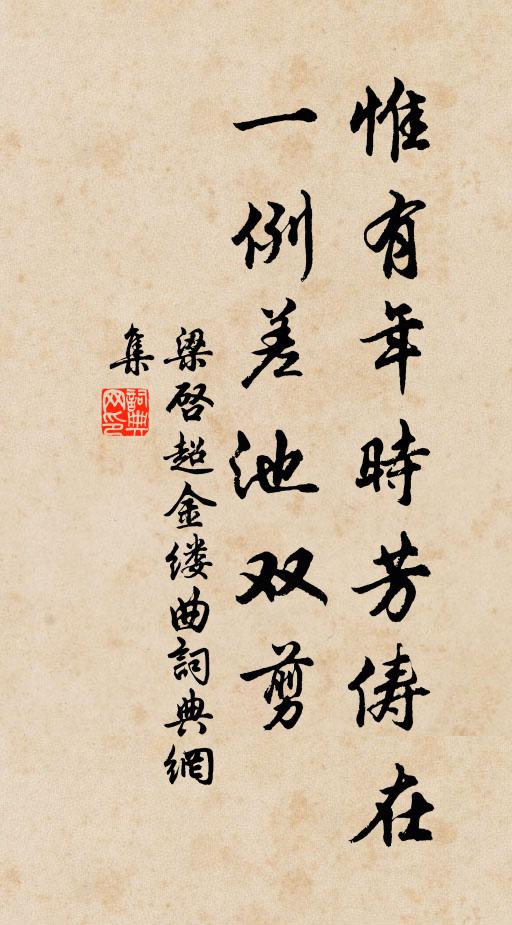 惟有年時芳俦在
一例差池双剪
梁啓超金缕曲詞典網
集
詞典网印